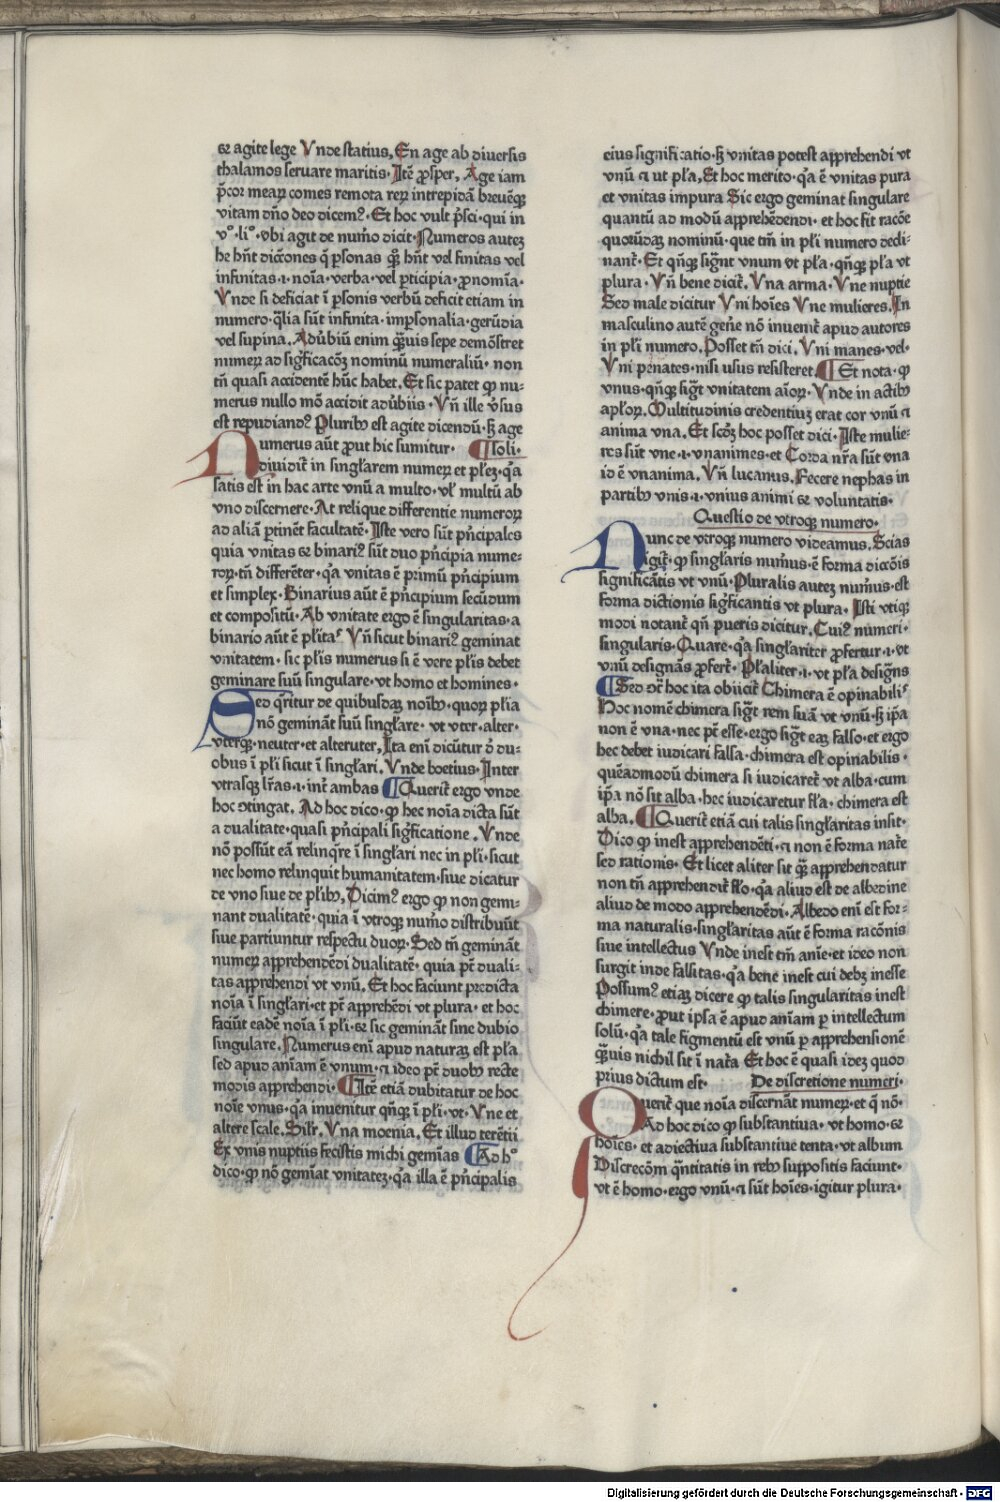 et agite lege Vnde statius. En age ab diuersis
thalamos seruare maritis. Itē ꝓsper. Age iam
p̄cor mearꝫ comes remota rerꝫ intrepidā breuēqꝫ
vitam dn̄o deo dicemꝰ. Et hoc vult p̄sci. qui in
vº. liº. vbi agit de num̄o dicit. Numeros autez
he hn̄t dictōnes q̄ ꝑsonas
infinitas .i. noīa. verba. vel ꝑticipia. ꝓnomīa.
Vnde si deficiat ī ꝑsonis verbū deficit etiam in
numero. q̄lia sūt infinita. imꝑsonalia. gerūdia
vel supina. Aduērbiū enim qꝫuis sepe demōstret
numerꝫ ad sigficacōꝫ nominū numeraliū. non
tn̄ quasi accidentē hūc habet. Et sic patet ꝙ nu-
merus nullo mō accidit aduūbiis. Vn̄ ille v̄sus
est repudiandꝰ Pluribꝫ est agite dicendū. sꝫ age
Numerus aūt ꝓut hic sumitur. ¶Soli.
diuidit̄ in singl̄arem numerꝫ et pl̄eꝫ. qꝛa
satis est in hac arte vnū a multo. vl̓ multū ab
vno discernere. At relique differentie numerorꝫ
ad aliā ꝑtinēt facultatē. Iste vero sūt p̄ncipales
quia vnitas et binariꝰ sūt duo p̄ncipia nume-
rorꝫ. tn̄ differēter. qꝛa vnitas ē primū p̄ncipium
et simplex. Binarius aūt ē p̄ncipium secūdum
et compositū. Ab vnitate ergo ē singularitas. a
binario aūt ē pl̄itaˢ Vn̄ sicut binariꝰ geminat
vnitatem. sic pl̄is numerus si ē vere pl̄is debet
geminare suū singulare. vt homo et homines.
Sed q̄ritur de quibusdaꝫ noībꝫ. quorꝫ pl̄ia
nō gemināt suū singl̄are. vt vter. alter.
vterqꝫ. neuter. et alteruter. Ita eni dicūtur ō du-
obus ī pl̄i sicut ī singl̄ari. Vnde boetius. Inter
vtrasqꝫ lr̄as .i. int̄ ambas ¶Querit̄ ergo vnde
hoc ↄtingat. Ad hoc dico. ꝙ hec noīa dicta sūt
a dualitate. quasi p̄ncipali sigficatione. Vnde
nō possūt eā relinqr̄e ī singl̄ari nec in pl̄i. sicut
nec homo relinquit humanitatem. siue dicatur
de vno siue de pl̄ibꝫ. Dicimꝰ ergo ꝙ non gemi-
nant dualitatē. quia ī vtroqꝫ num̄o distribuūt
siue partiuntur respectu duorꝫ. Sed tn̄ gemināt
numerꝫ apprehendēdi dualitatē. quia pt̄ duali-
tas apprehendi vt vnū. Et hoc faciunt predicta
noīa ī singl̄ari. et pt̄ apprehēdi vt plura. et hoc
faciūt eadē noīa ī pl̄i. et sic gemināt sine dubio
singulare. Numerus eni apud naturaꝫ est pl̄a
sed apud aniam ē vnum. ⁊ ideo pt̄ duobꝫ recte
modis apprehendi. ¶Itē etiā dubitatur de hoc
noīe vnus. qꝛa inuenitur qn̄qꝫ ī pl̄i. vt. Vne et
altere scale. Silr̄. Vna moenia. Et illud terētii
Ex vnis nuptiis fecistis michi gemīas ¶Ad hº
dico. ꝙ nō gemiat vnitateꝫ. qꝛa illa ē p̄ncipalis
eius significatio. sꝫ vnitas potest apprehendi vt
vnū ⁊ ut pl̄a. Et hoc merito. qꝛa ē vnitas pura
et vnitas impura Sic ergo geminat singulare
quantū ad modū apprehēdendi. et hoc fit racōe
quorūdaꝫ nominū. que tm̄ in pl̄i numero decli-
nant̄. Et qn̄qꝫ sigt̄ vnum vt pl̄a. qn̄qꝫ pl̄a vt
plura. Vn̄ bene dicit̄. Vna arma. Vne nuptie
Sed male dicitur Vni hoīes Vne mulieres. In
masculino autē gen̄e nō inuenit̄ apud autores
in pl̄i numero. Posset tn̄ dici. Vni manes. vel.
Vni penates. nisi usus resisteret. ¶Et nota. ꝙ
vnus. qn̄qꝫ sigt̄ vnitatem aīorꝫ. Vnde in actibꝫ
apl̄orꝫ. Multitudinis credentiuꝫ erat cor vnū ⁊
anima vna. Et scd̄ꝫ hoc posset dici. Iste mulie-
res sūt vne .i. vnanimes. et Corda nr̄a sūt vna
id ē vnanima. Vn̄ lucanus. Fecere nephas in
partibꝫ vnis .i. vnius animi et voluntatis.
Questio de vtroqꝫ numero.
Nunc de vtroqꝫ numero videamus. Scias
igit̄. ꝙ singl̄aris num̄us. ē forma dicōis
significātis vt vnū. Pluralis autez num̄us. est
forma dictionis sigficantis vt plura. Isti vtiqꝫ
modi notant̄ qn̄ pueris dicitur. Cuiꝰ numeri.
singularis. Quare. qꝛa singl̄ariter ꝓfertur .i. vt
vnū designās ꝓfert̄. Pl̄aliter .i. vt pl̄a designs
¶Sed ↄt̄ hoc ita obiicit̄ Chimera ē opinabilis
Hoc nomē chimera sigt̄ rem suā vt vnū. sꝫ ip̄a
non ē vna. nec pt̄ esse. ergo sigt̄ eaꝫ falso. et ergo
hec debet iudicari falsa. chimera est opinabilis.
quēadmodū chimera si iudicaret̄ vt alba. cum
ip̄a nō sit alba. hec iudicaretur fl̄a. chimera est
alba. ¶Querit̄ etiā cui talis singl̄aritas insit.
Dico ꝙ inest apprehendēti. ⁊ non ē forma nat̄e
sed rationis. Et licet aliter sit qꝫ apprehendatur
non tn̄ apprehendit̄ fl̄o. qꝛa aliud est de albedine
aliud de modo apprehendēdi. Albedo eni est for-
ma naturalis. singl̄aritas aūt ē forma racōnis
siue intellectus Vnde inest tm̄ anie. et ideo non
surgit inde falsitas. qꝛa bene inest cui debꝫ inesse
Possumꝰ etiaꝫ dicere ꝙ talis singularitas inest
chimere. ꝓut ipsa ē apud aniam ꝑ intellectum
solū. qꝛa tale figmentū est vnū ꝑ apprehensionē
qꝫuis nichil sit ī nat̄a Et hoc ē quasi ideꝫ quod
prius dictum est. De discretione numeri.
Querit̄ que noīa discernāt numerꝫ. et q̄ nō.
Ad hoc dico ꝙ substantiua. vt homo. et
hoīes. et adiectiua substantiue tenta. vt album
Discrecōm qn̄titatis in rebꝫ suppositis faciunt.
vt ē homo. ergo vnū. ⁊ sūt hoīes. igitur plura.
Digitalisierung gefördert durch die Deutsche Forschungsgemeinschaft - DFG